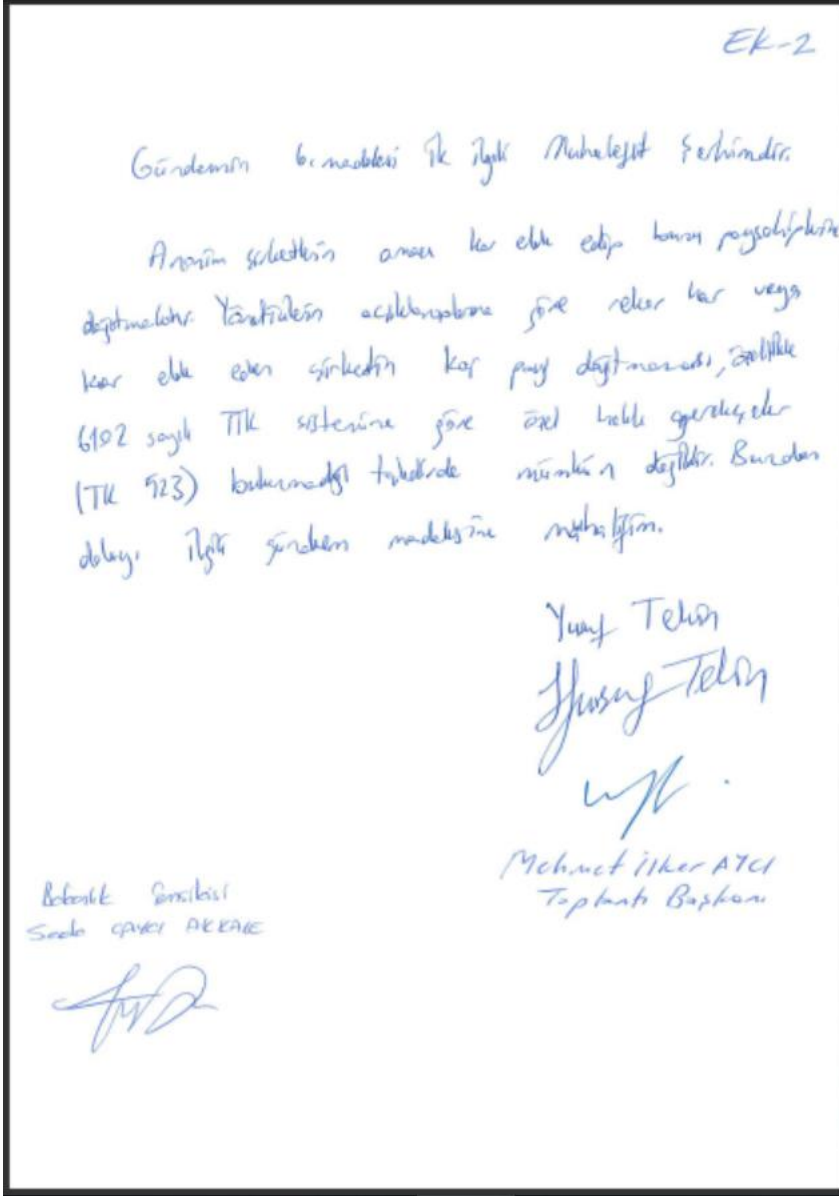 EK-2
Gündemin 6. maddesi ile ilgili Muhalefet Şerhimdir.
Anonim şirketlerin amacı kar elde edip bunu paysahiplerine
dağıtmaktır. Yöneticilerin açıklamalarına göre rekor kar veya
kar elde eden şirketin kar payı dağıtmaması, özellikle
6102 sayılı TTK sistemine göre özel haklı gerekçeler
(TTK 523) bulunmadığı takdirde mümkün değildir. Bundan
dolayı ilgili gündem maddesine muhalifim.
Yusuf Tekin
Yusuf Tekin
Mehmet İlker AYCI
Toplantı Başkanı
Bakanlık Temsilcisi
ÇAYCI AKKALE